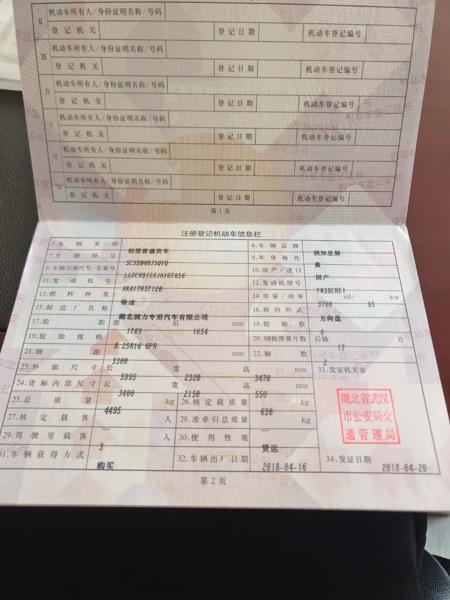 II 机动车所有人/身份证明名称/号码
登记机关 登记日期 机动车登记编号
III 机动车所有人/身份证明名称/号码
登记机关 登记日期 机动车登记编号
IV 机动车所有人/身份证明名称/号码
登记机关 登记日期 机动车登记编号
V 机动车所有人/身份证明名称/号码
登记机关 登记日期 机动车登记编号
VI 机动车所有人/身份证明名称/号码
登记机关 登记日期 机动车登记编号
VII 机动车所有人/身份证明名称/号码
登记机关 登记日期 机动车登记编号
第1页
注册登记机动车信息栏
5.车辆类型 轻型普通货车 6.车辆品牌 润知星牌
7.车辆型号 8.车身颜色 黄
9.车辆识别代号/车架号 10.国产/进口 国产
11.发动机号 12.发动机型号
13.燃料种类 柴油 14.排量/功率 3760 ml/ 95 kw
15.制造厂名称 湖北润力专用汽车有限公司 16.转向形式 方向盘
17.轮距 前 1769 后 1654 mm 18.轮胎数 6
19.轮胎规格 8.25R16 6PR 20.钢板弹簧片数 后轴 17 片
21.轴距 3300 mm 22.轴数 2
23.外廓尺寸 长 5995 宽 2320 高 3470 mm 33.发证机关章
24.货厢内部尺寸 长 3400 宽 2150 高 550 mm
25.总质量 4495 kg 26.核定载质量 630 kg
27.核定载客 -- 人 28.准牵引总质量 -- kg
29.驾驶室载客 3 人 30.使用性质 货运
31.车辆获得方式 购买 32.车辆出厂日期 2018-04-16 34.发证日期 2018-04-20
湖北省武汉
市公安局交
通管理局
第2页